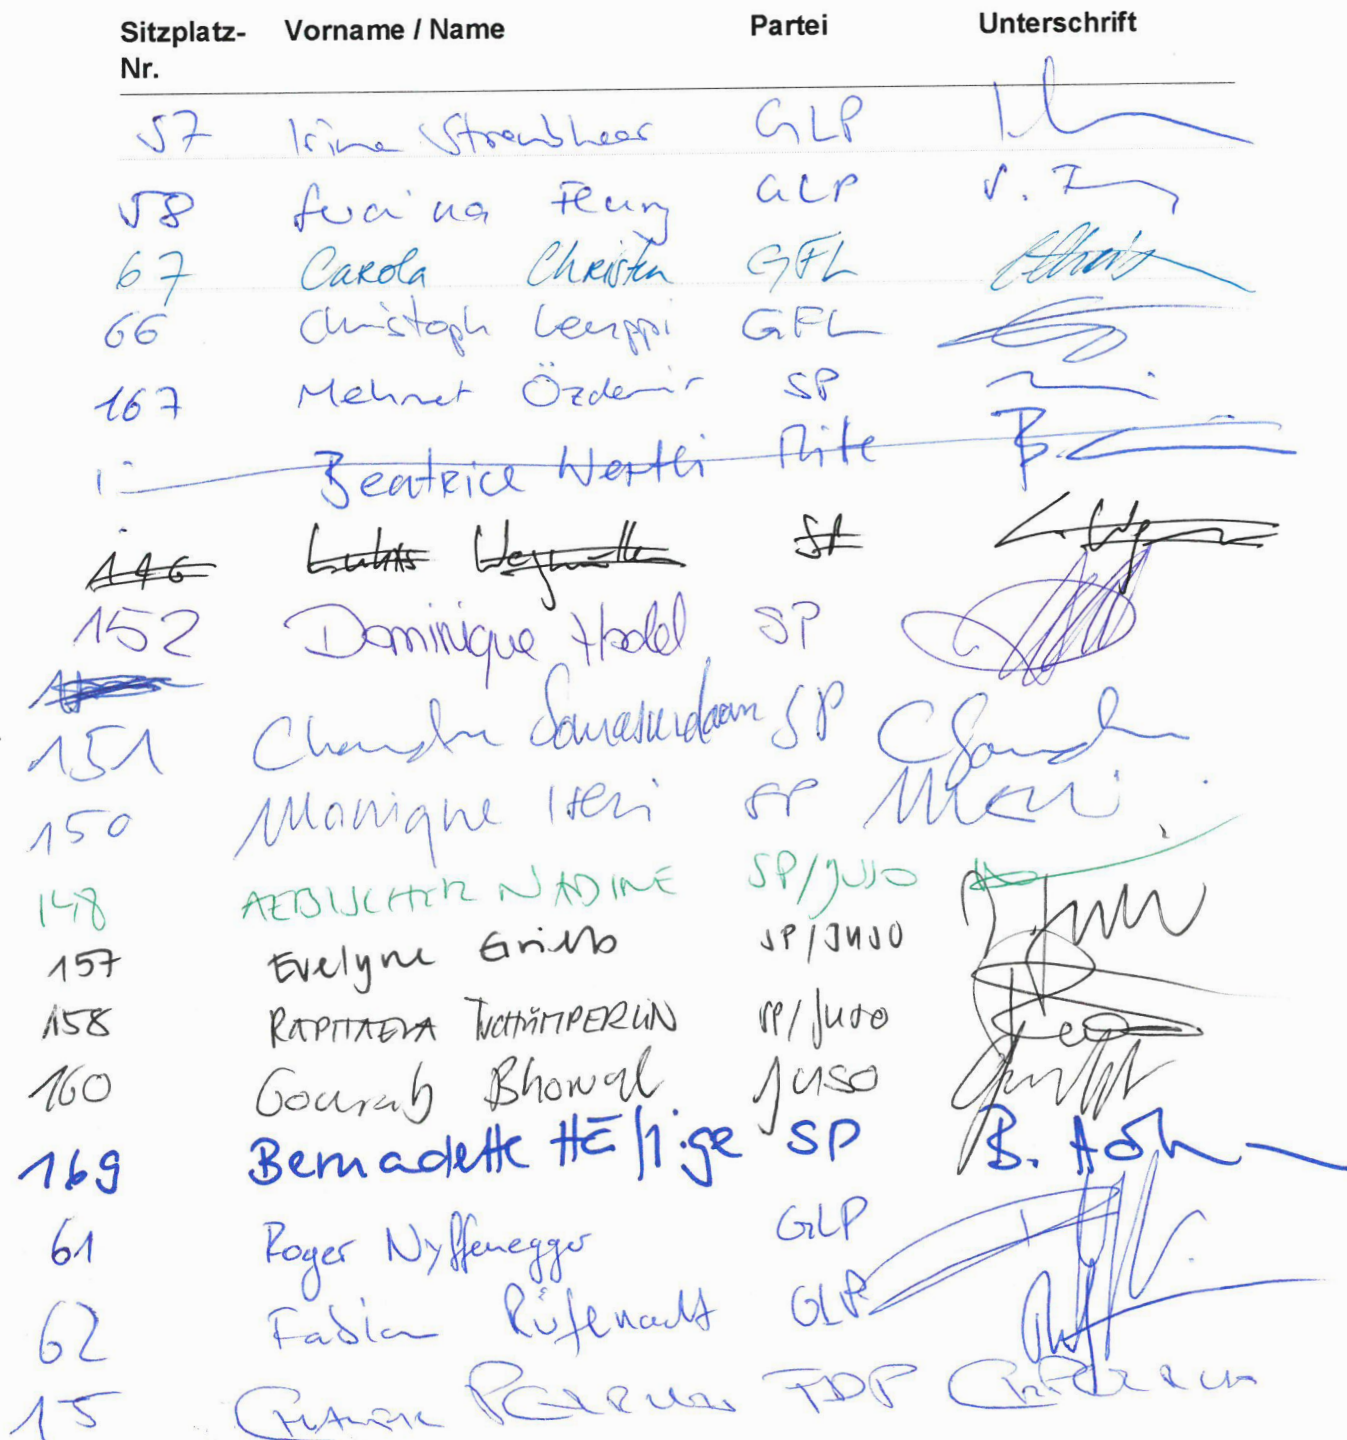 Sitzplatz- Vorname / Name Partei Unterschrift
Nr.
57 Irina Straubhaar GLP
58 Fleury GLP
67 Carola Christen GFL
66 Christoph Leuppi GFL
167 Mehmet Özdemir SP
Beatrice Wertli Mitte B.
146 Lukas Wegmüller SP
152 Dominique Hodel SP
151 Chandru Somasundaram SP
150 Monique Iseli SP
148 AEBISCHER NADINE SP/JUSO
157 Evelyne Grieb SP/JUSO
158 RAPHAELA TSCHÜMPERLIN SP/Juso
160 Gourab Bhowal Juso
169 Bernadette HÄfliger SP B.
61 Roger Nyffenegger GLP
62 Fabian Rüfenacht GLP
15 FDP